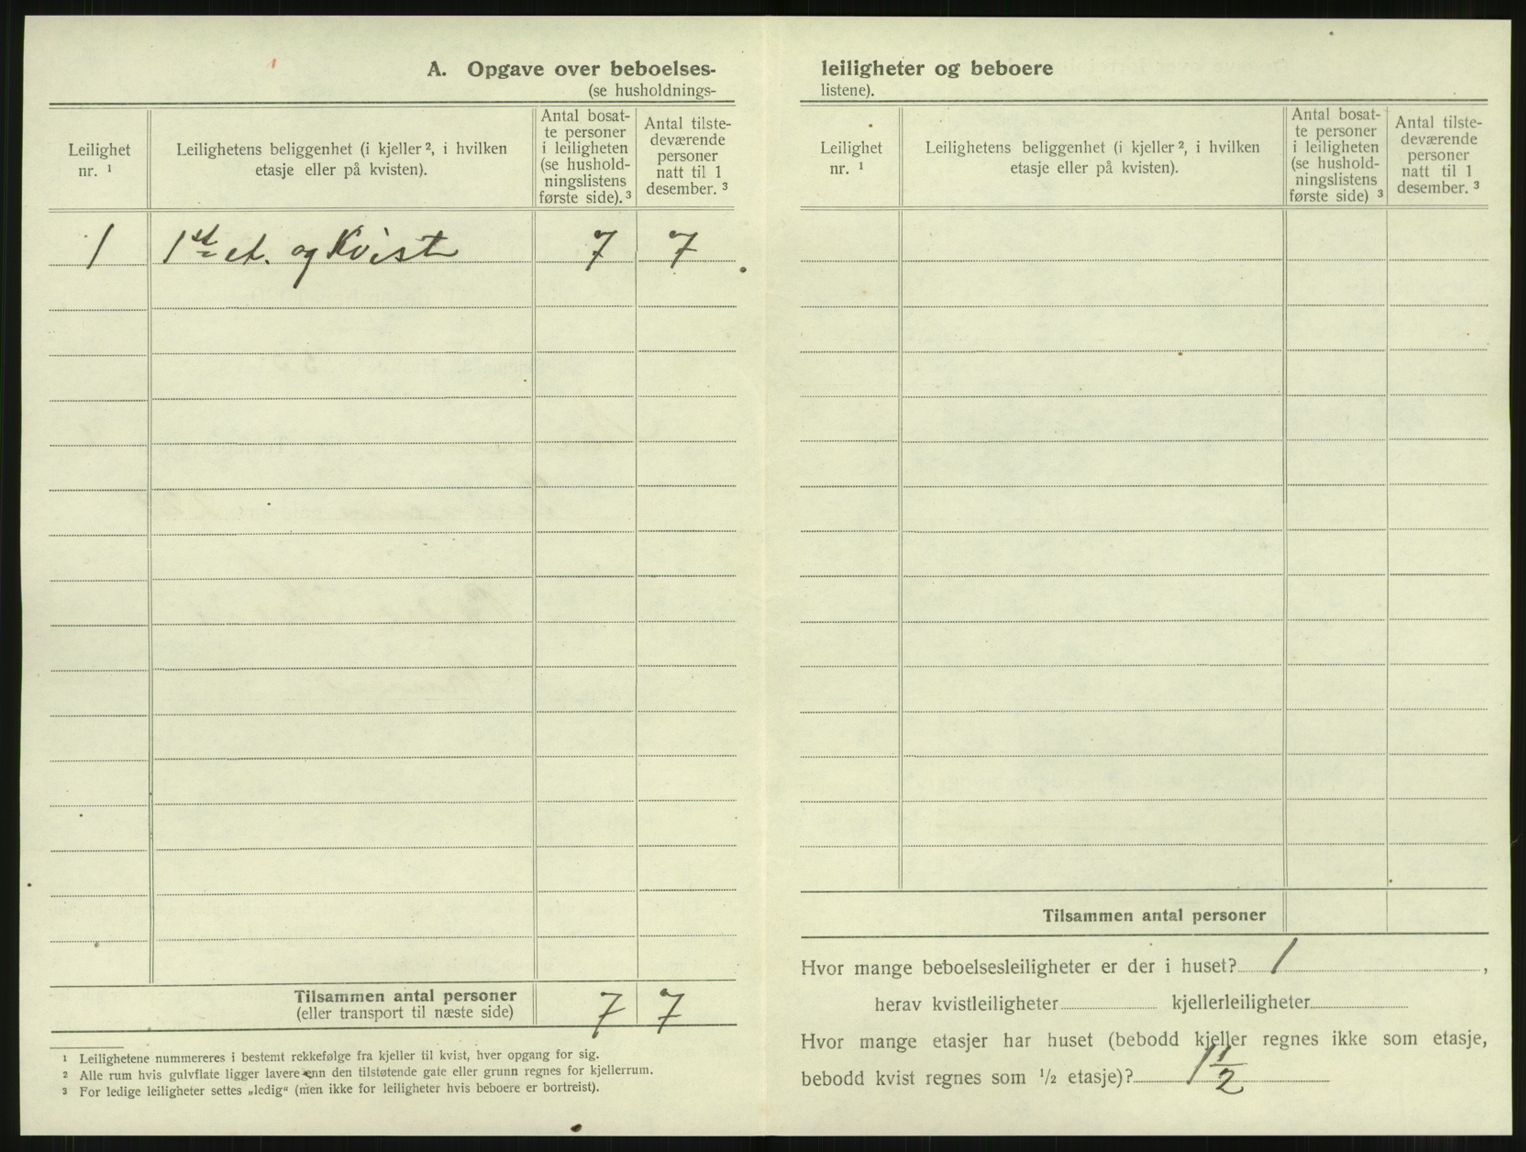 A. Opgave over beboelses-
(se husholdnings-
Leilighet
nr. ¹
Leilighetens beliggenhet (i kjeller ², i hvilken
etasje eller på kvisten).
Antal bosat-
te personer
i leiligheten
(se hushold-
ningslistens
første side). ³
Antal tilste-
deværende
personer
natt til 1
desember. ³
1 1ste et. og Kvist 7 7
Tilsammen antal personer
(eller transport til næste side)
7 7
¹ Leilighetene nummereres i bestemt rekkefølge fra kjeller til kvist, hver opgang for sig.
² Alle rum hvis gulvflate ligger lavere enn den tilstøtende gate eller grunn regnes for kjellerrum.
³ For ledige leiligheter settes „ledig“ (men ikke for leiligheter hvis beboere er bortreist).
leiligheter og beboere
listene).
Leilighet
nr. ¹
Leilighetens beliggenhet (i kjeller ², i hvilken
etasje eller på kvisten).
Antal bosat-
te personer
i leiligheten
(se hushold-
ningslistens
første side) ³
Antal tilste-
deværende
personer
natt til 1
desember. ³
Tilsammen antal personer
Hvor mange beboelsesleiligheter er der i huset? 1 ,
herav kvistleiligheter kjellerleiligheter
Hvor mange etasjer har huset (bebodd kjeller regnes ikke som etasje,
bebodd kvist regnes som ½ etasje)? 1 ½